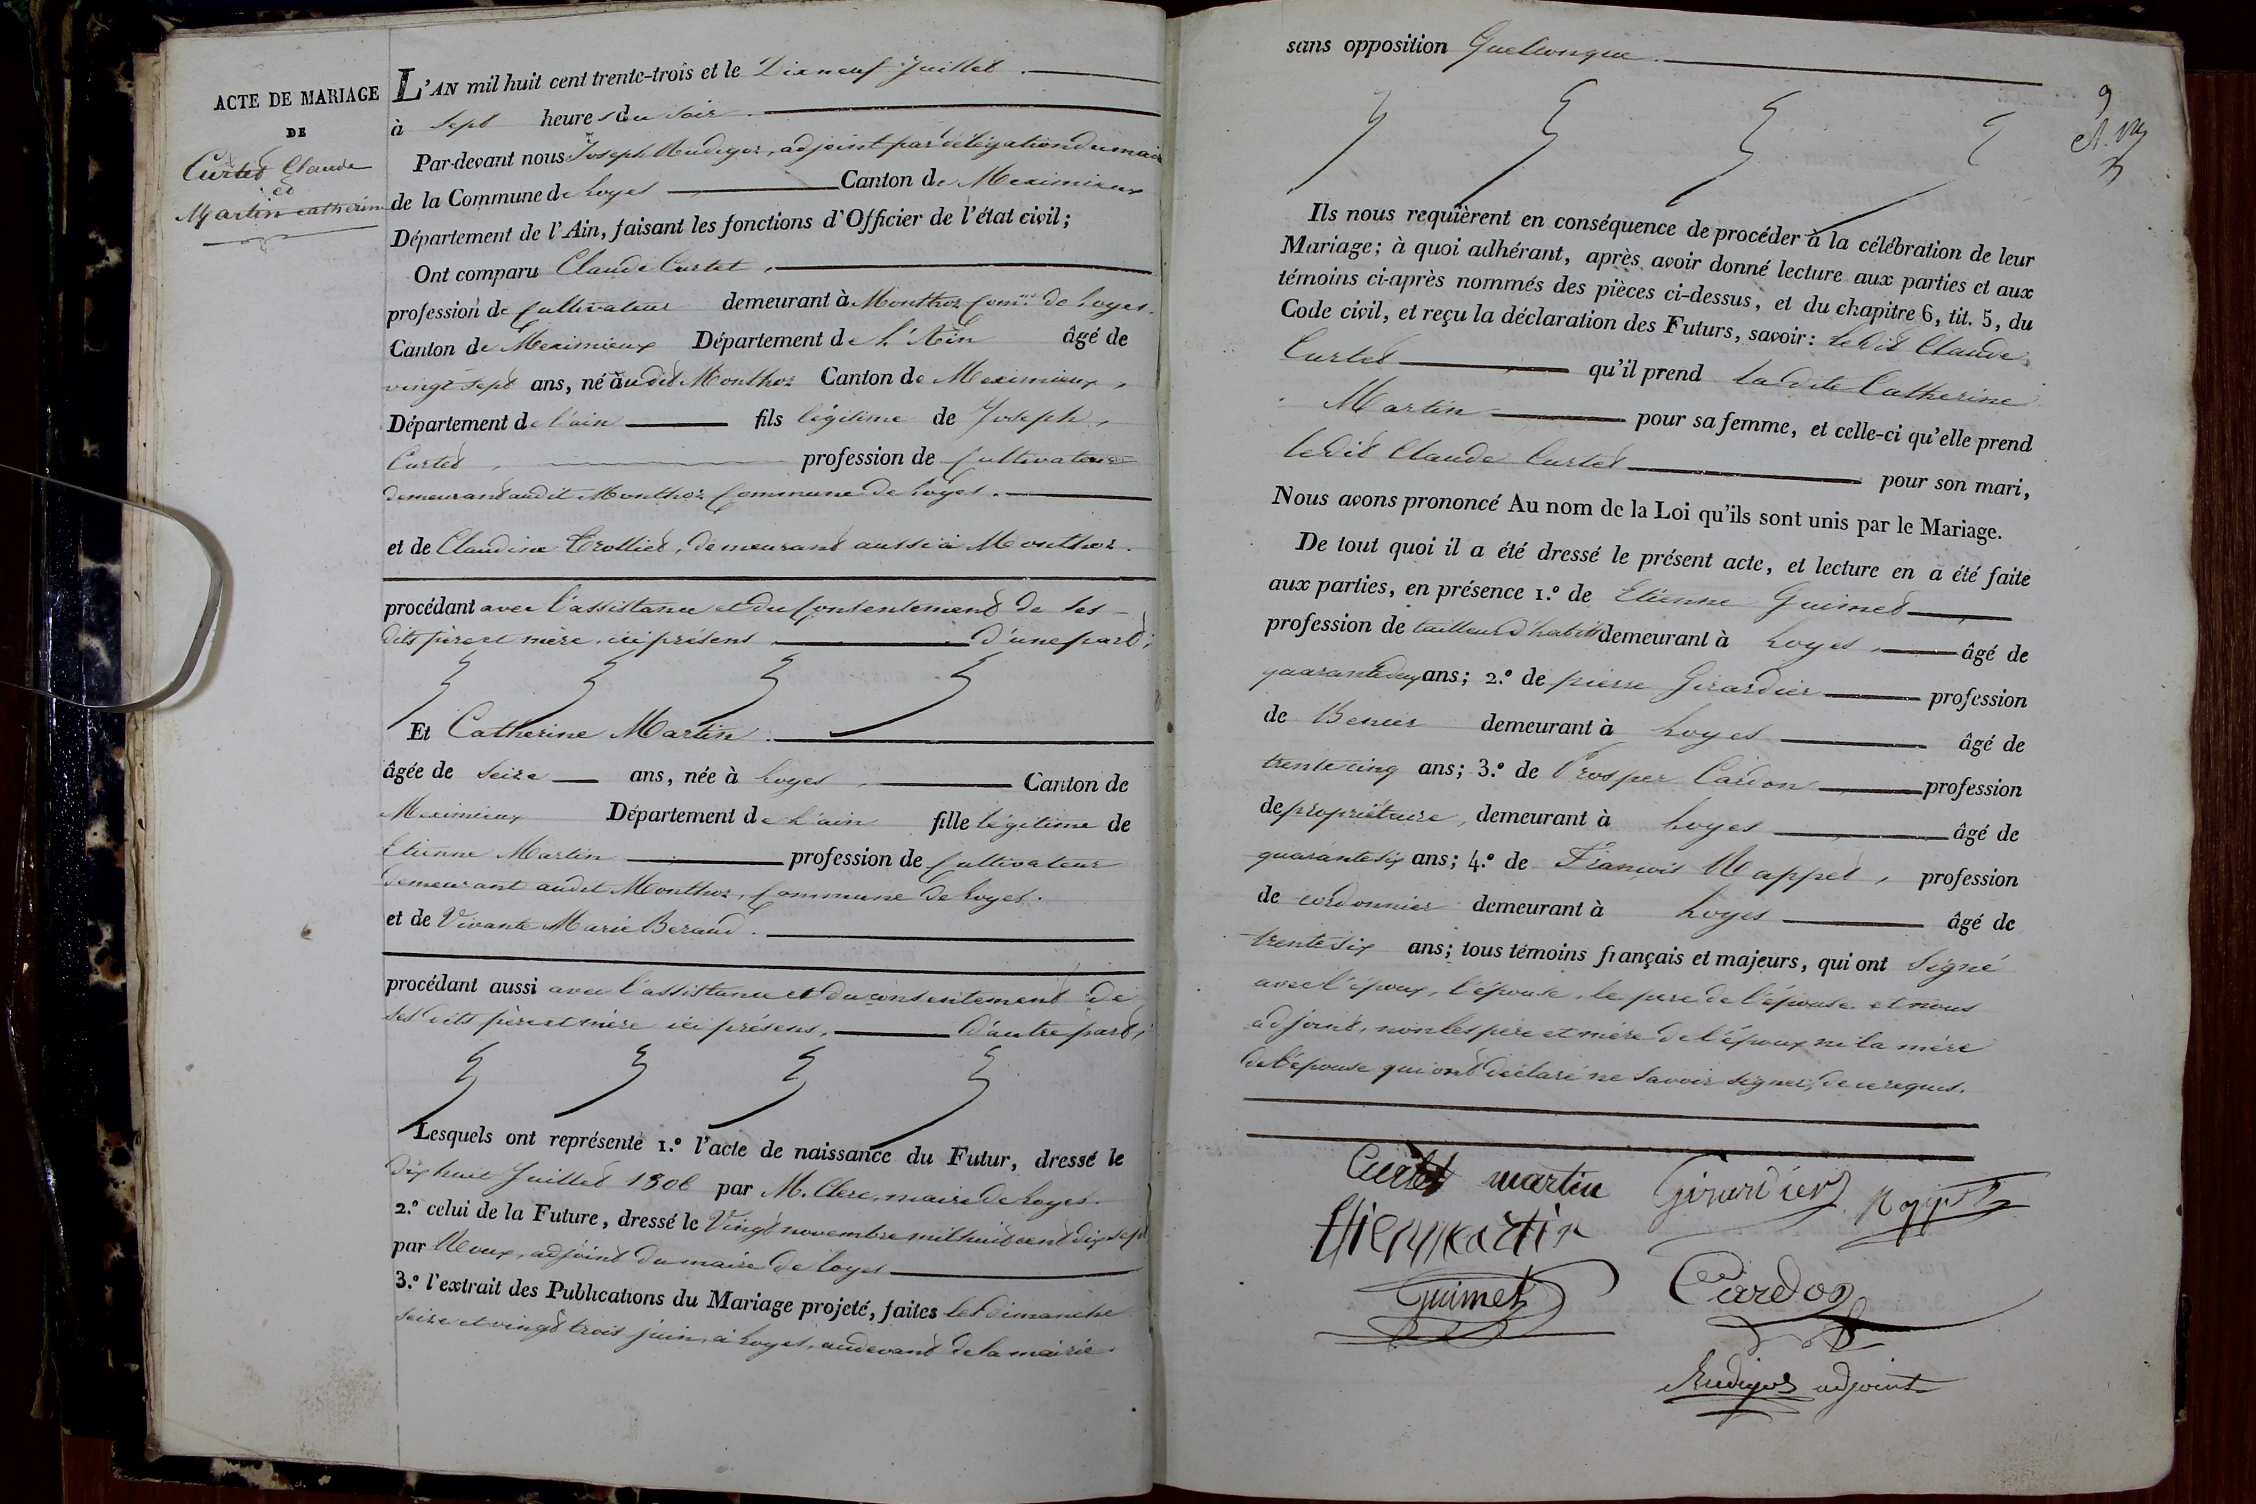 ACTE DE MARIAGE
DE
Curtet Claude
et
Martin catherine
L'AN mil huit cent trente-trois et le Dix neuf Juillet
à sept heures du soir
Par-devant nous Joseph adjoint par délégation du maire
de la Commune de Loyes Canton de Meximieux
Département de l'Ain, faisant les fonctions d'Officier de l'état civil;
Ont comparu Claude Curtet,
profession de Cultivateur demeurant à Monthoz Comne de Loyes.
Canton de Meximieux Département de L'Ain âgé de
vingt sept ans, né audit Monthoz Canton de Meximieux,
Département de l'ain fils légitime de Joseph,
Curtet, profession de Cultivateur
demeurant audit Monthoz Commune de Loyes.
et de Claudine Trolliet, demeurant aussi à Monthoz.
procédant avec l'assistance et du Consentement de ses
dits père et mère ici présens d'une part;
Et Catherine Martin
âgée de seize ans, née à Loyes, Canton de
Meximieux Département de L'ain fille légitime de
Etienne Martin profession de Cultivateur
demeurant audit Monthoz, Commune de Loyes.
et de Vivante Marie Beraud.
procédant aussi avec l'assistance et du consentement de
ses dits père et mère ici présens, d'autre part;
Lesquels ont représenté 1.º l'acte de naissance du Futur, dressé le
dix huit Juillet 1806 par M. Clerc, maire de Loyes
2.º celui de la Future, dressé le Vingt novembre mil huit cent dix sept
par adjoint du maire de Loyes
3.º l'extrait des Publications du Mariage projeté, faites les dimanche
seize et vingt trois juin, à Loyes, audevant de la mairie.
sans opposition Quelconque
9
Ils nous requièrent en conséquence de procéder à la célébration de leur
Mariage; à quoi adhérant, après avoir donné lecture aux parties et aux
témoins ci-après nommés des pièces ci-dessus, et du chapitre 6, tit. 5, du
Code civil, et reçu la déclaration des Futurs, savoir: ledit Claude
Curtet qu'il prend la dite Catherine
Martin pour sa femme, et celle-ci qu'elle prend
ledit Claude Curtet pour son mari,
Nous avons prononcé Au nom de la Loi qu'ils sont unis par le Mariage.
De tout quoi il a été dressé le présent acte, et lecture en a été faite
aux parties, en présence 1.º de Etienne Guimet
profession de tailleur d'habits demeurant à Loyes, âgé de
quarante deux ans; 2.º de pierre Girardier profession
de demeurant à Loyes âgé de
trente cinq ans; 3.º de Prosper Cardon profession
de propriétaire, demeurant à Loyes âgé de
quarante six ans; 4.º de François Mappet, profession
de cordonnier demeurant à Loyes âgé de
trente six ans; tous témoins français et majeurs, qui ont signé
avec l'époux, l'épouse, le père de l'épouse et nous
adjoint, non les père et mère de l'époux ni la mère
de l'épouse qui ont déclaré ne savoir signer, de ce requis.
Curtet martin Girardier
Guimet Cardon
adjoint